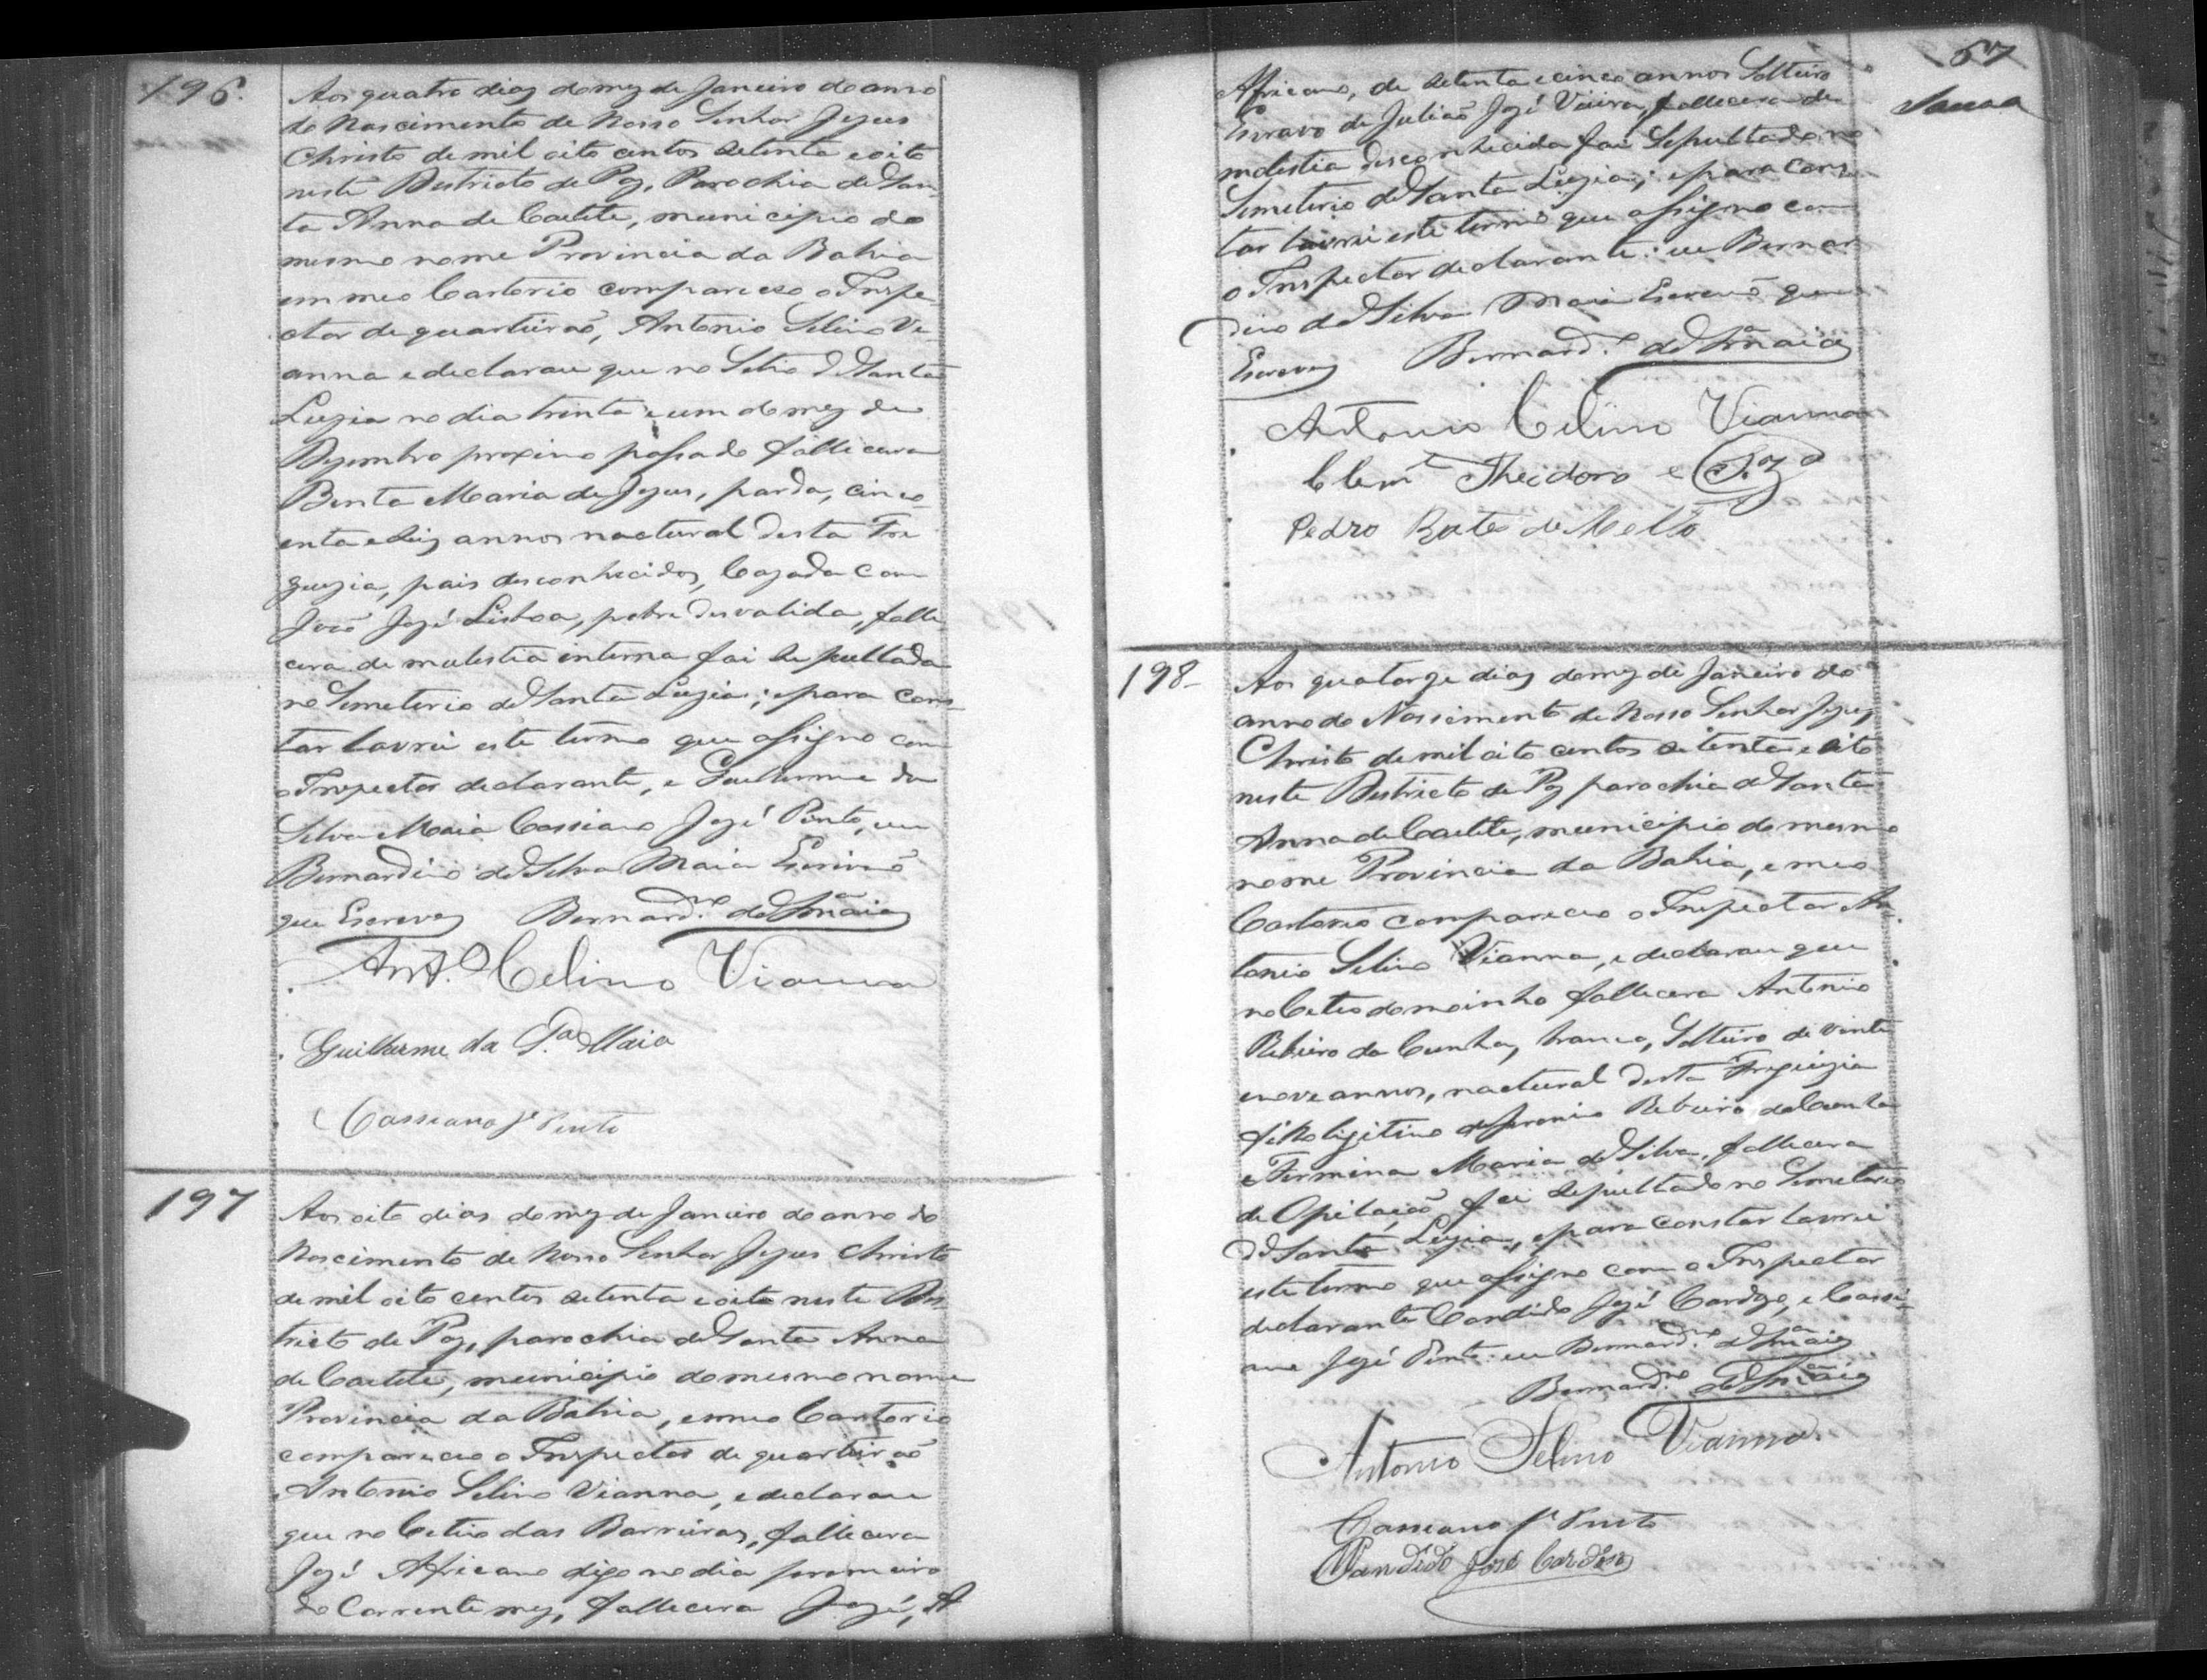 196.
Aos quatro dias do mez de Janeiro do anno
do Nascimento de Nosso Senhor Jezus
Christo de mil oito centos setenta e oito
neste Destricto de Paz, Parochia de San-
ta Anna de Caetité, municipio do
mesmo nome Provincia da Bahia
em meo Cartorio compareceo o Inspe-
ctor de quarteirão, Antonio Selino Vi-
anna e declarou que no Sitio de Santa
Luzia no dia trinta e um do mez de
Dezembro proximo passado fallecera
Benta Maria de Jezus, parda, cinco-
enta e seis annos nactural desta Fre
guezia, pais desconhecidos, Cazada com
João Jozé Lisboa, pobre desvalida, falle-
cera de molestia interna foi sepultada
no Semeterio de Santa Luzia; e para cons-
tar lavrei este termo que assigno com
o Inspector declarante, e Guilherme da
Silva Maia Cassiano Jozé Pinto, eu
Bernardino da Silva Maia Escrivão
que Escrevy Bernard.no da S.a Maia
Ant.o Celino Vianna
Guilherme da S.a Maia
Cassiano J.e Pinto
197
Aos oito dias do mez de Janeiro do anno do
Nascimento de Nosso Senhor Jezus Christo
de mil oito centos setenta e oito neste Des-
tricto de Paz, parochia de Santa Anna
de Caetité, municipio do mesmo nome
Provincia da Bahia, em meo Cartorio
compareceo o Inspector de quarteirão
Antonio Selino Vianna, e declarou
que no Citio das Barreiras, fallecera
Jozé Africano digo no dia primeiro
do Corrente mez, fallecera Jozé, A
57
Africano, de setenta e cinco annos Solteiro
Escravo de Julião Jozé Vieira, fallecera de
molestia desconhecida foi Sepultado no
Semeterio de Santa Luzia; e para cons-
tar lavrei este termo que assigno com
o Inspector declarante: eu Bernar
dino da Silva Maia Escrivão que
Escrevy Bernard.o da S.a Maia
Antonio Celino Vianna
Clem.e Theodoro e
Pedro de Mello
198-
Aos quatorze dias do mez de Janeiro do
anno do Nascimento de Nosso Senhor Jezus
Christo de mil oito centos setenta e oito
neste Destricto de Paz parochia de Santa
Anna de Caetité, municipio do mesmo
nome Provincia da Bahia, e meo
Cartorio compareceo o Inspector An
tonio Selino Vianna, e declarou que
no Citio do moinho fallecera Antonio
Ribeiro da Cunha, branco, Solteiro de vinte
e nove annos, nactural desta Freguizia
filho ligitimo de Ribeiro da Cunha
e Firmina Maria da Silva, fallecera
de Opilação foi sepultado no Semeterio
de Santa Luzia, e para constar lavrei
este termo que assigno com o Inspector
declarante Candido Jozé Cardozo, e Cassi-
ano Jozé Pinto: eu Bernard.no da S.a Maia
Bernard.no da S.a Maia
Antonio Selino Vianna.
Cassiano J.e Pinto
Candido José Cardozo